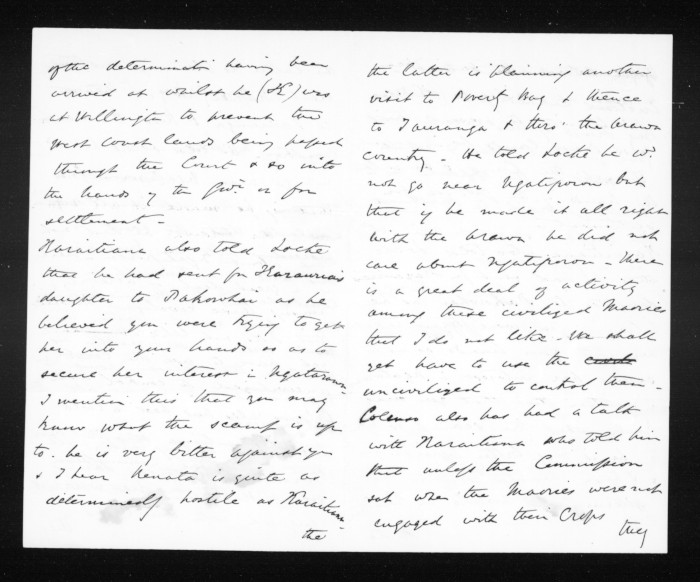 of the determinatn having been
arrived at whilst he (K) was
at Wellington to prevent the
West Coast lands being passed
through the Court & so into
the hands of the Govt. or for
settlement -
Karaitiana also told Locke
that he had sent for Karauria's
daughter to Pakowhai as he
believed you were trying to get
her into your hands so as to
secure her interest in
I mention this that you may
know what the scamp is up
to. he is very bitter against you
& I hear Renata is quite as
determinedly hostile as Karaitiana -
the
the latter is planning another
visit to Poverty Bay & thence
to Tauranga & thro' the Arawa
country - He told Locke he wd.
not go near Ngatiporou but
that if he made it all right
with the Arawa he did not
care about Ngatiporou - There
is a great deal of activity
among these civilized Maories
that I do not like - We shall
yet have to use the
uncivilized to control them -
Colenso also has had a talk
with Karaitiana who told him
that unless the Commission
sat when the Maories were not
engaged with their Crops
they